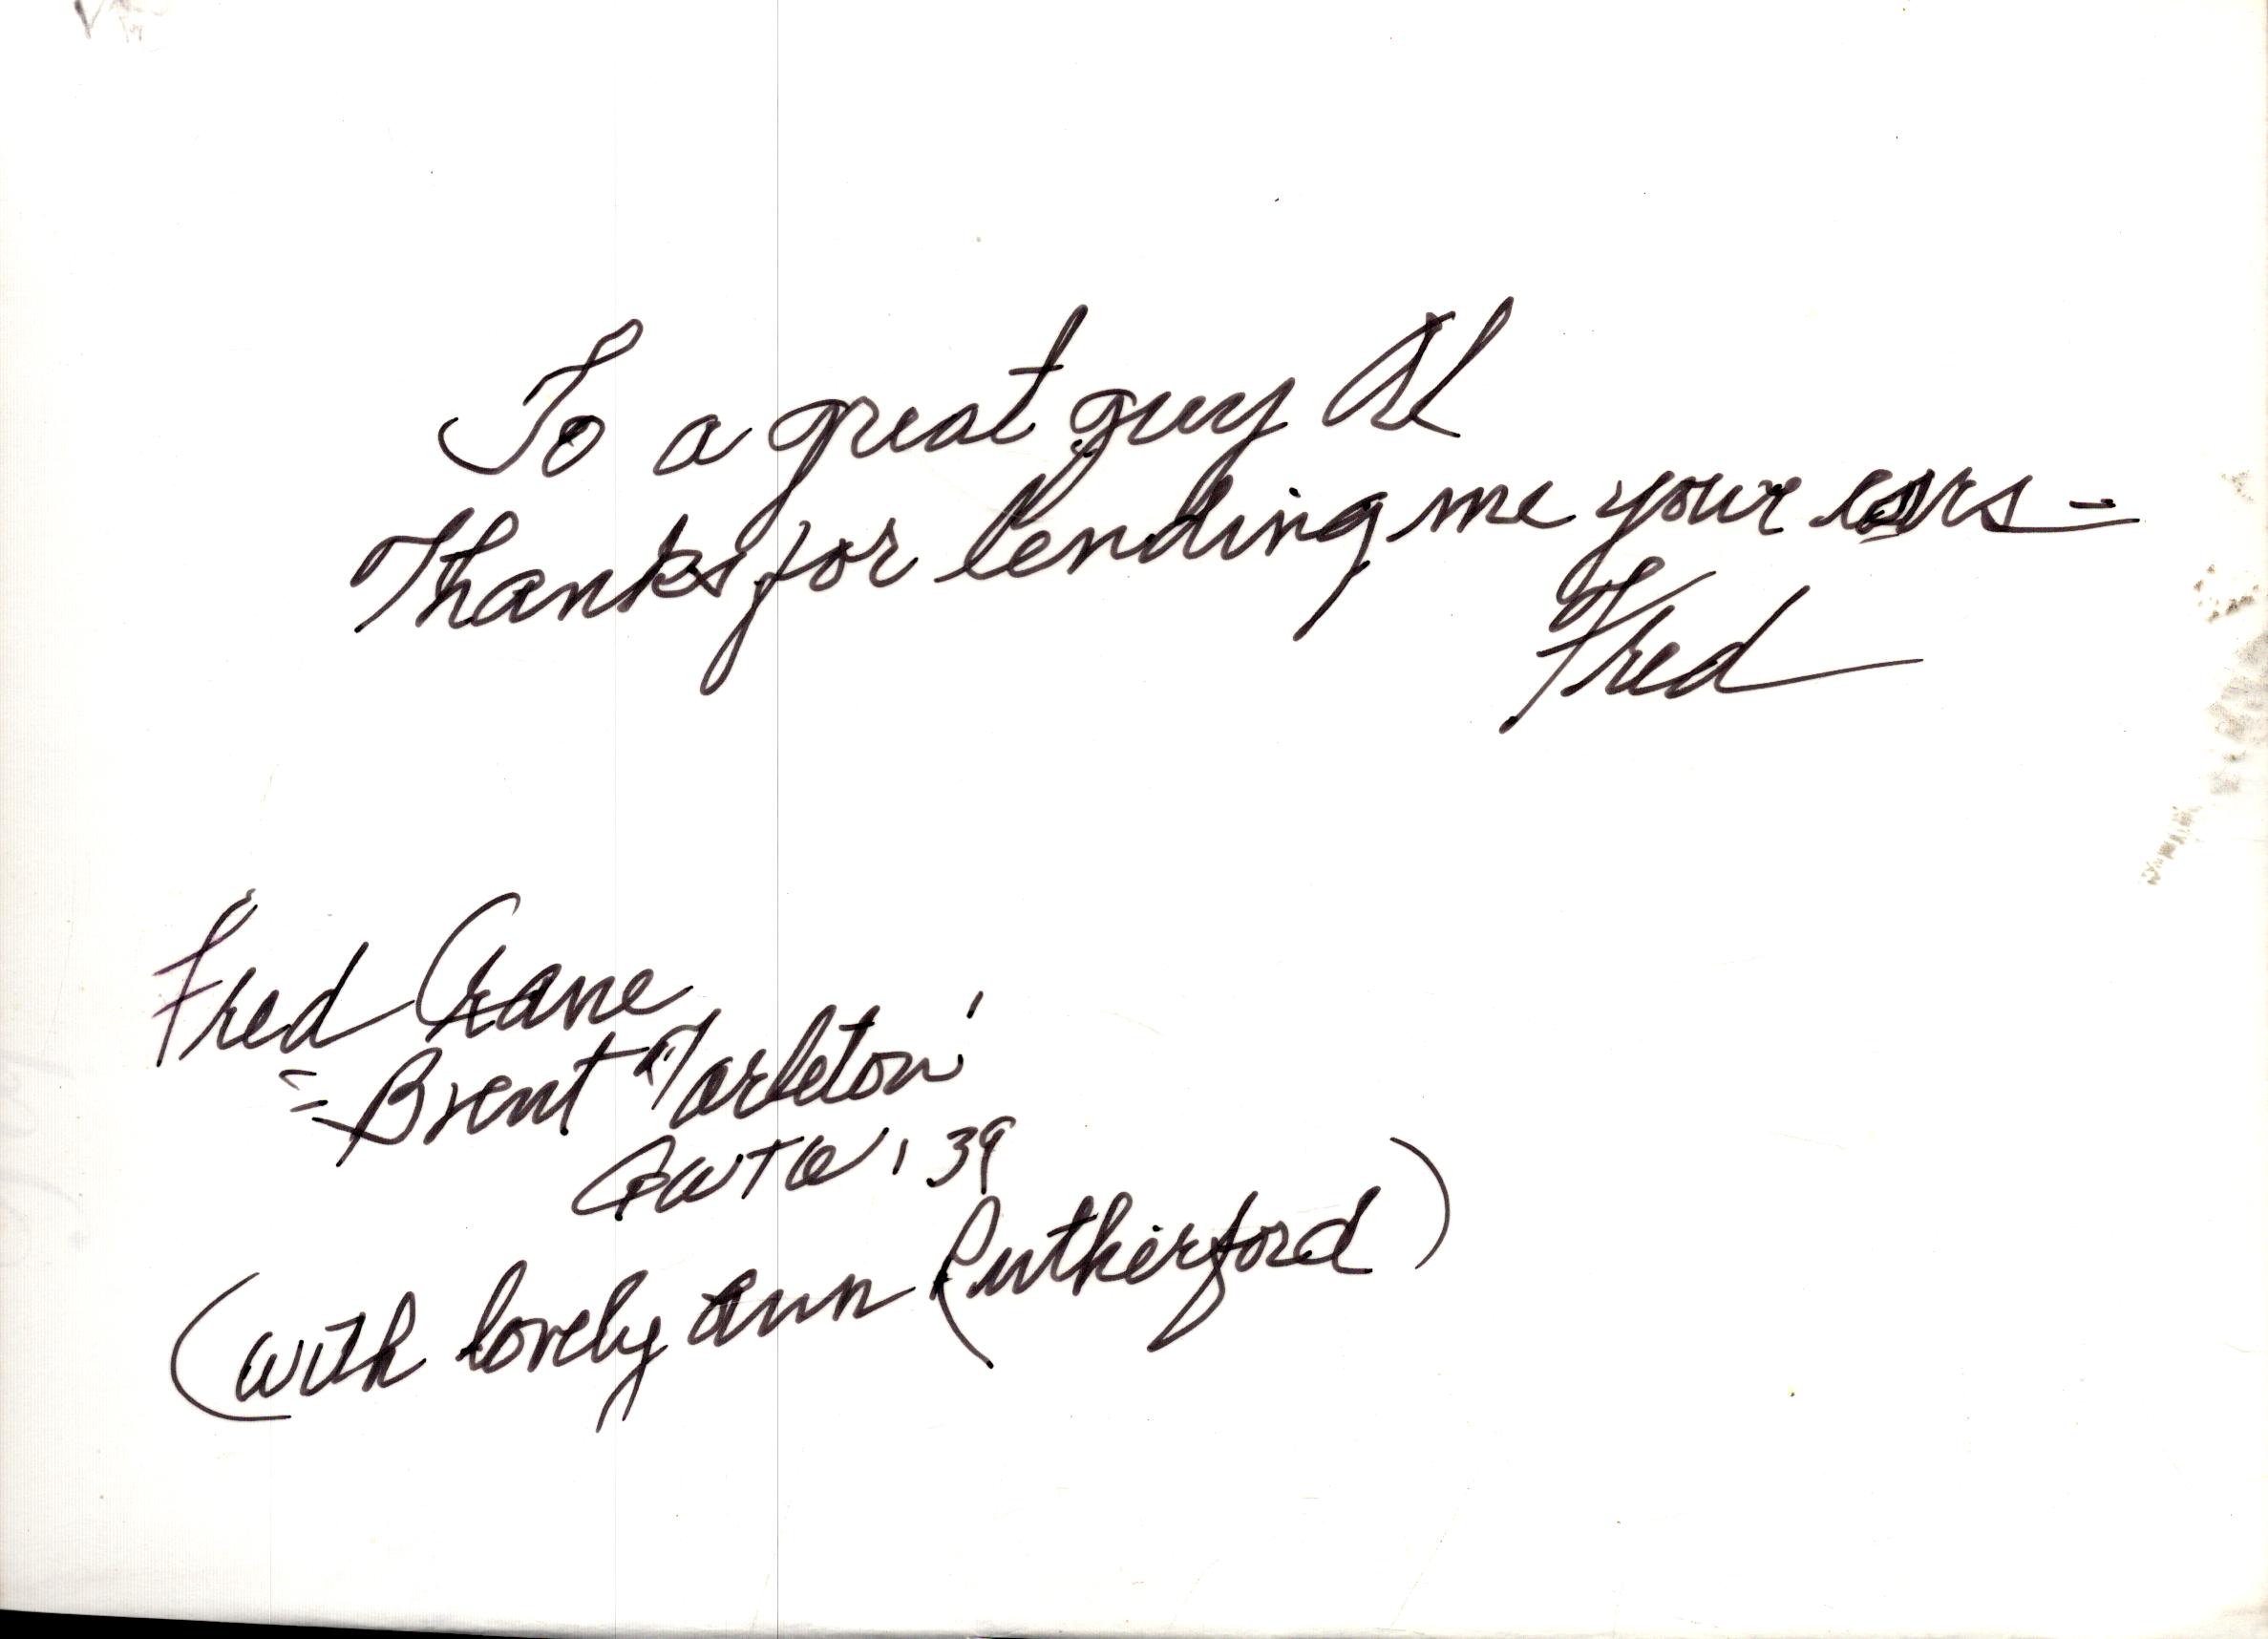 To a great guy Al
Thanks for lending me your ears -
Fred
Fred Crane
= Brent Tarleton'
GWTW '39
(with lovely Ann Rutherford)